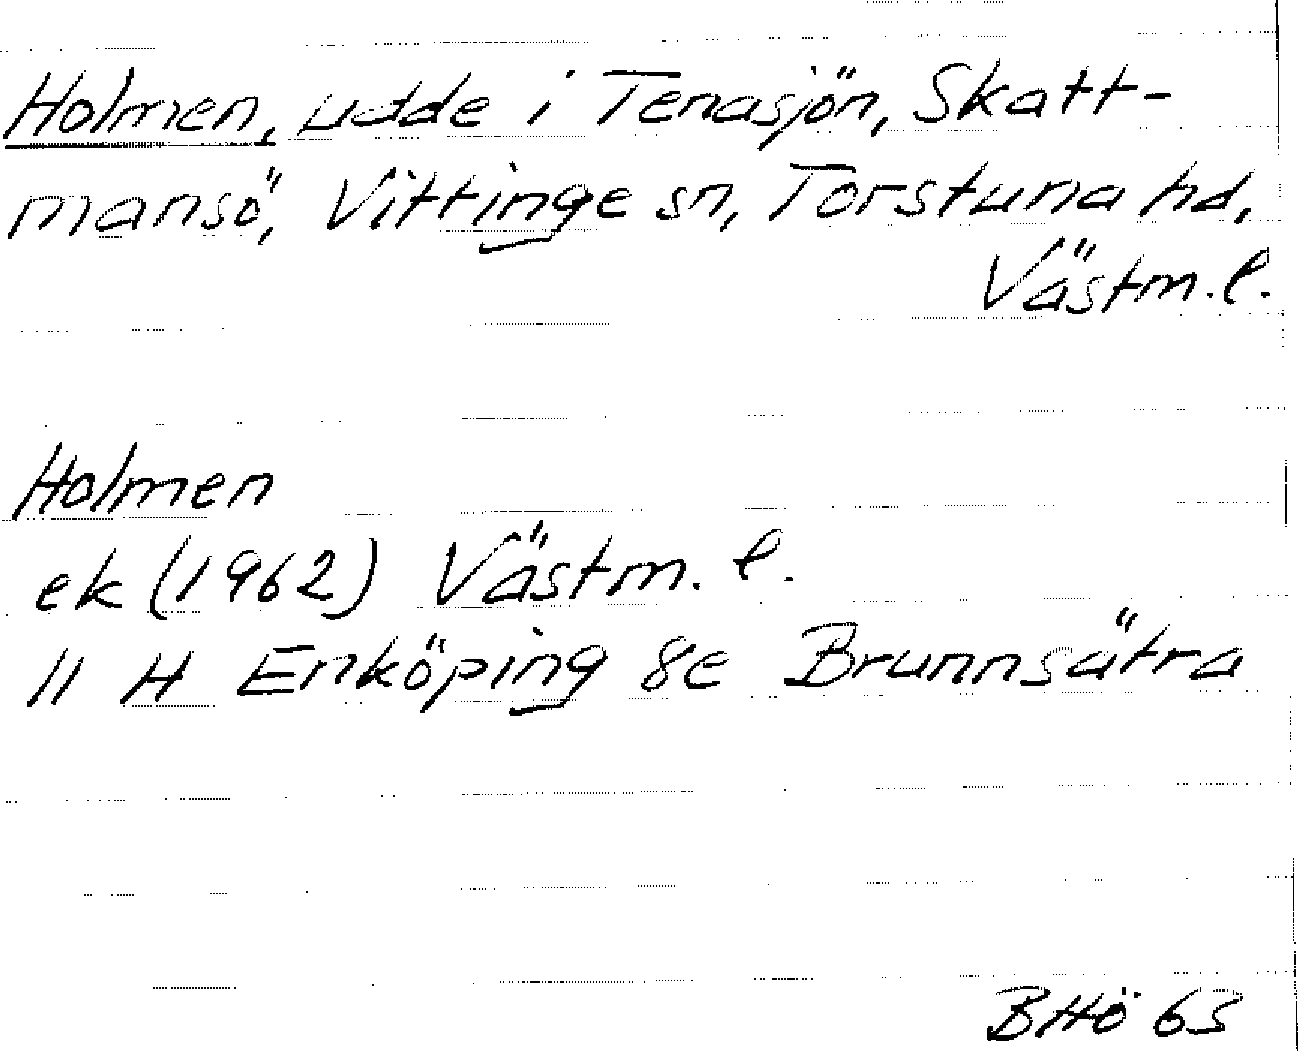 Holmen, udde i Tenasjön, Skatt-
mansö, Vittinge sn, Torstuna hd,
Västm. l.
Holmen
ek (1962) Västm. l.
11 H Enköping 8e Brunnsätra
BHö 63